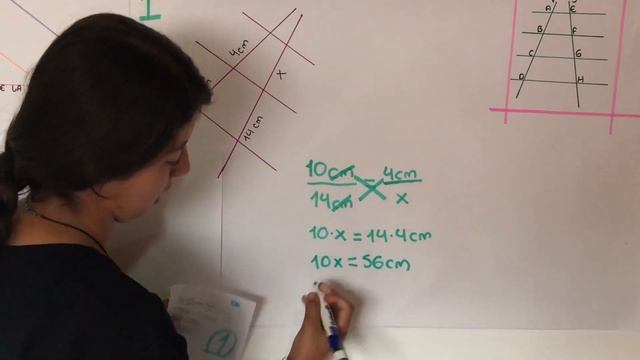 1
4cm
x
14cm
A E
B F
C G
D H
10cm = 4cm
14cm x
10·x = 14·4cm
10x = 56cm
1